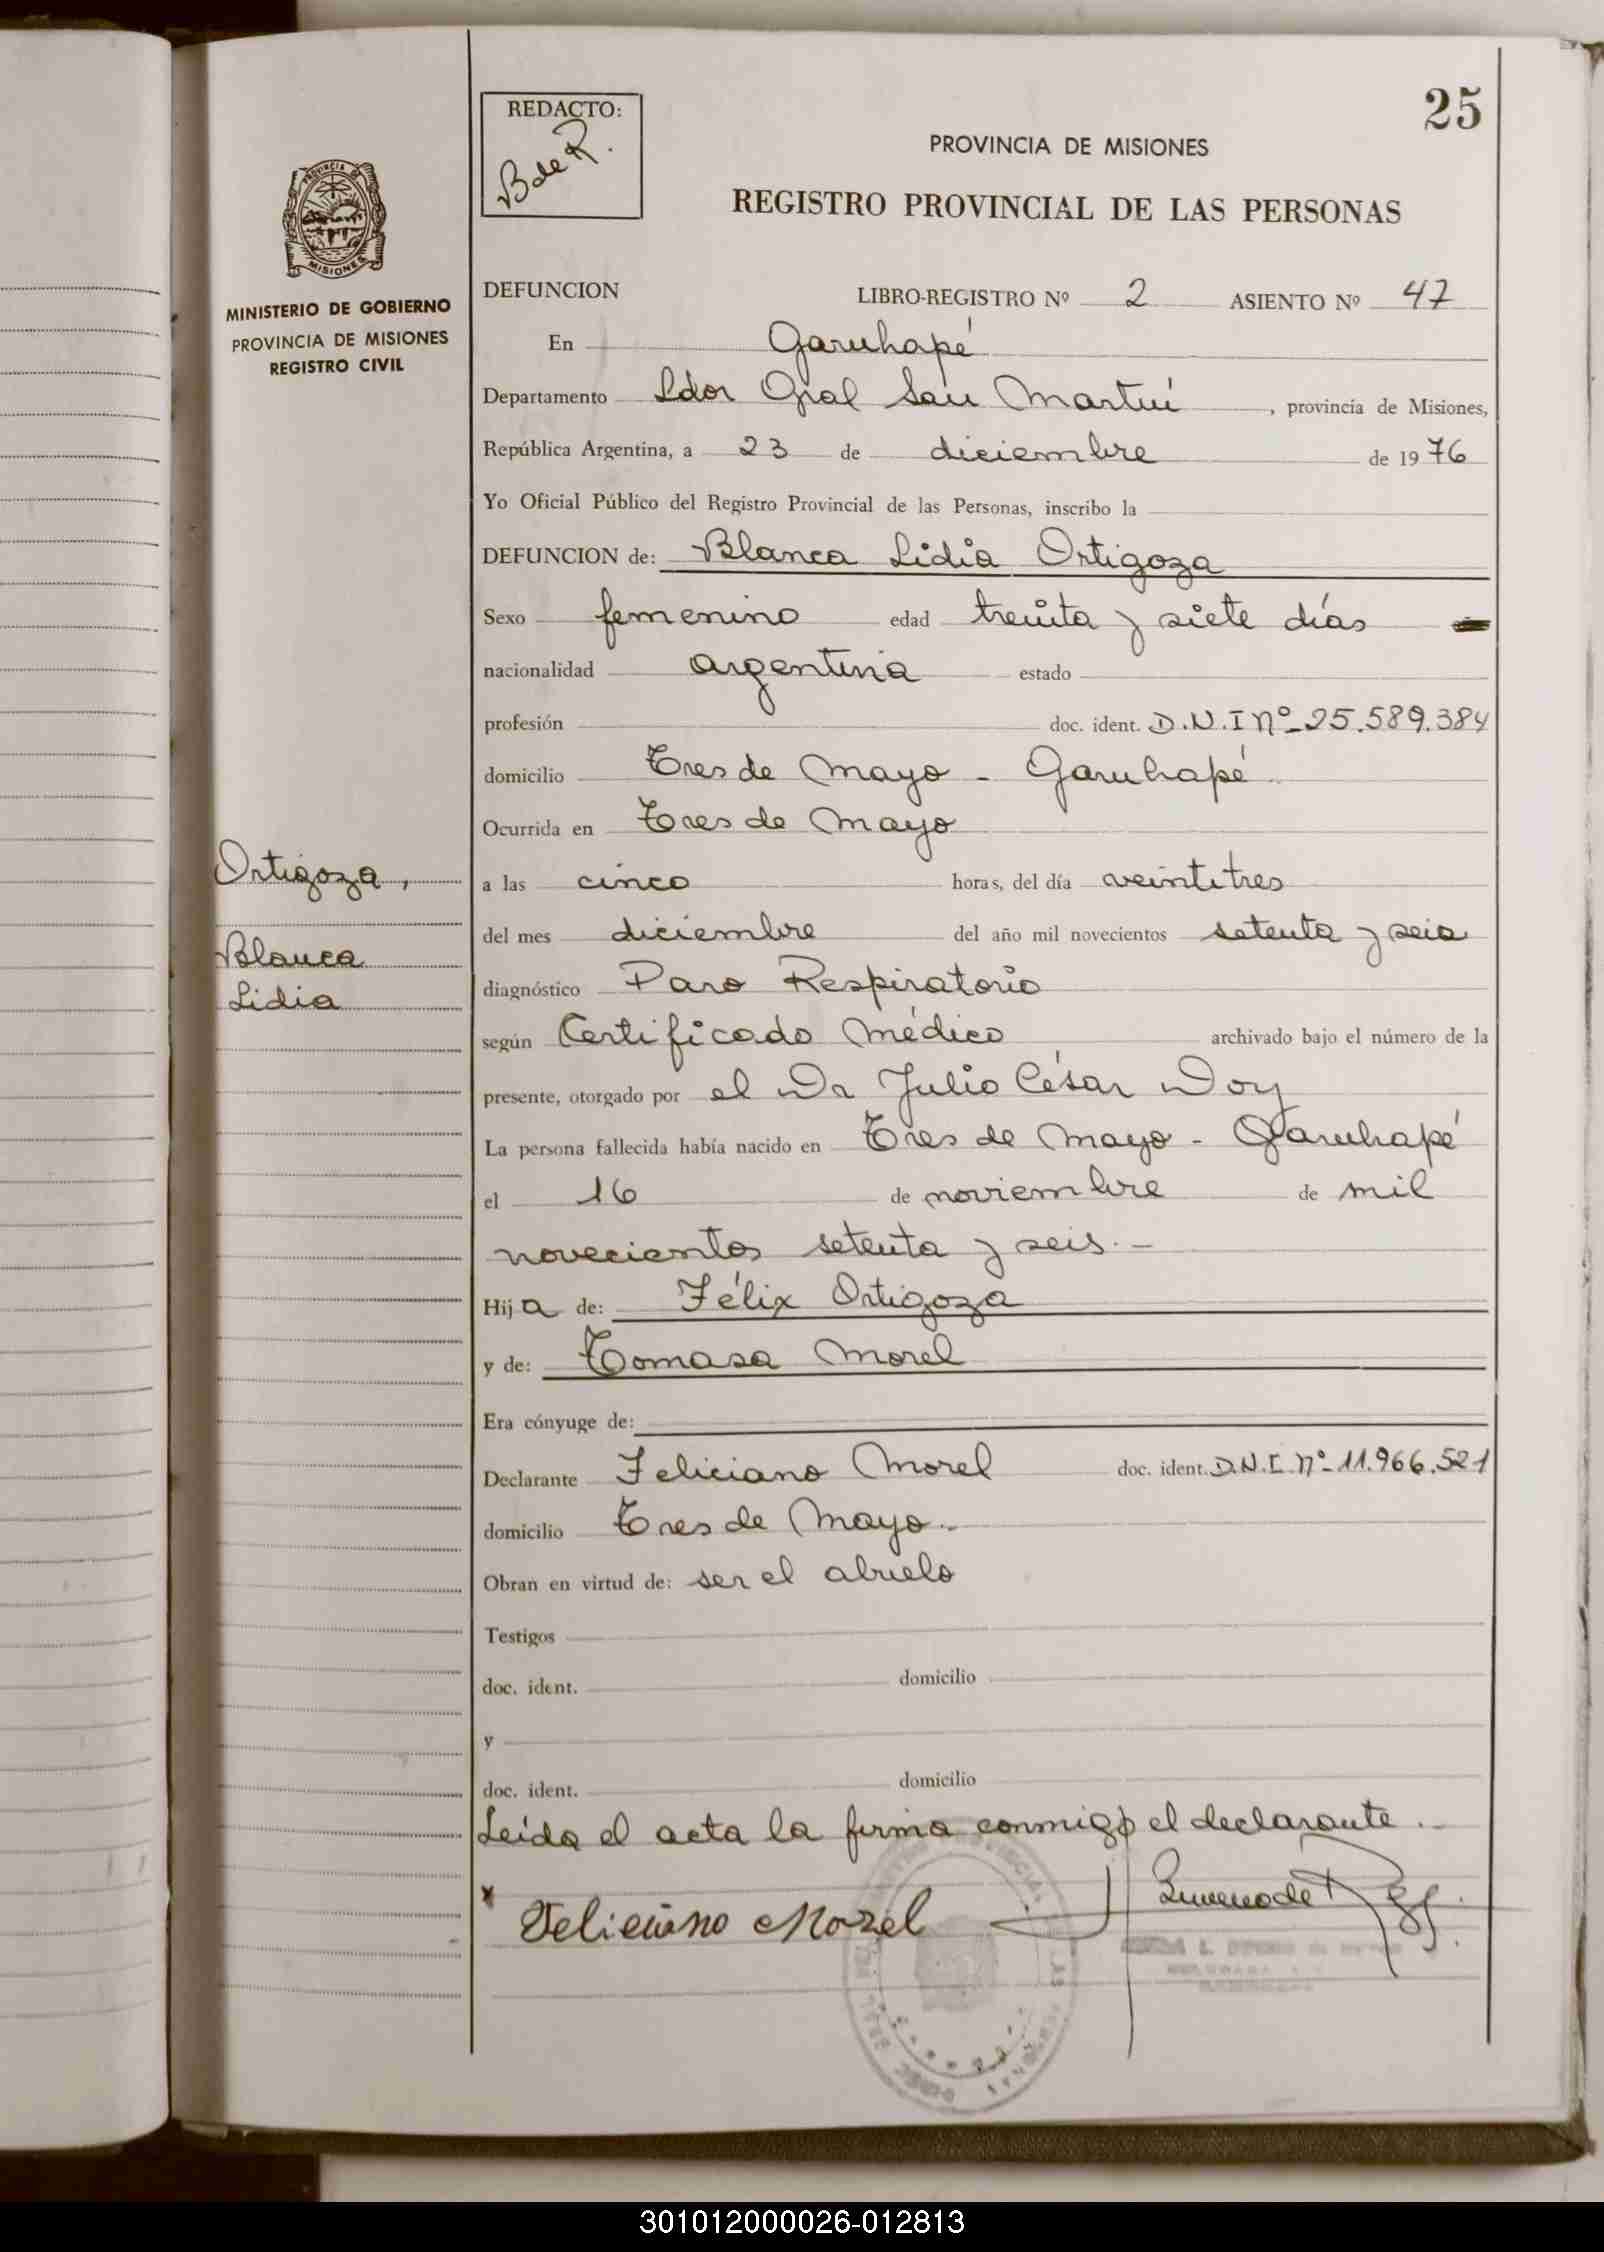 25
REDACTO:
B de R.
PROVINCIA DE MISIONES
REGISTRO PROVINCIAL DE LAS PERSONAS
PROVINCIA DE
MISIONES
MINISTERIO DE GOBIERNO
PROVINCIA DE MISIONES
REGISTRO CIVIL
DEFUNCION LIBRO-REGISTRO Nº 2 ASIENTO Nº 47
En Garuhapé
Departamento Ldor Gral San Martín, provincia de Misiones,
República Argentina, a 23 de diciembre de 1976
Yo Oficial Público del Registro Provincial de las Personas, inscribo la
DEFUNCION de: Blanca Lidia Ortigoza
Sexo femenino edad treinta y siete días
nacionalidad argentina estado
profesión doc. ident. D.N.I Nº-25.589.384
domicilio Tres de Mayo - Garuhapé
Ocurrida en Tres de Mayo
Ortigoza,
Blanca
Lidia
a las cinco horas, del día veintitres
del mes diciembre del año mil novecientos setenta y seis
diagnóstico Paro Respiratorio
según Certificado Médico archivado bajo el número de la
presente, otorgado por el Dr Julio César Doy
La persona fallecida había nacido en Tres de Mayo - Garuhapé
el 16 de noviembre de mil
novecientos setenta y seis.-
Hija de: Félix Ortigoza
y de: Tomasa Morel
Era cónyuge de:
Declarante Feliciano Morel doc. ident. D.N.I. Nº-11.966.521
domicilio Tres de Mayo.-
Obran en virtud de: ser el abuelo
Testigos
doc. ident. domicilio
y
doc. ident. domicilio
Leida el acta la firma conmigo el declarante.-
x Feliciano Morel
301012000026-012813